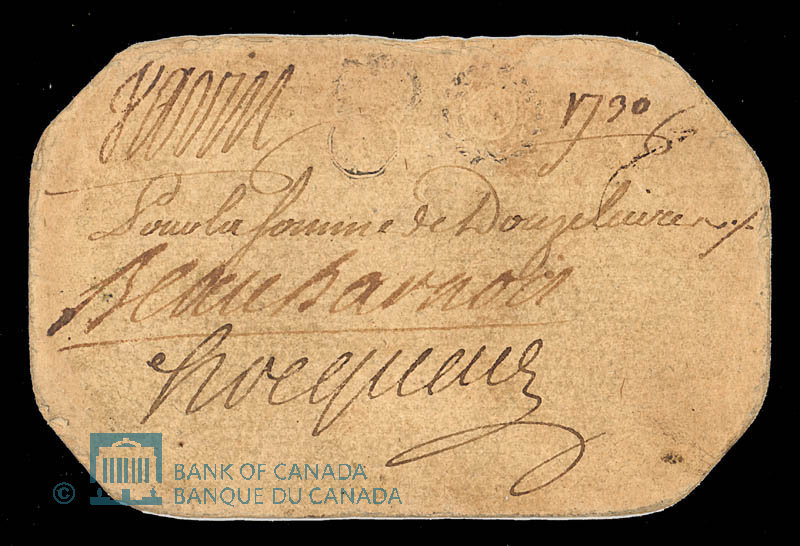 Varin 1730
Pour la Somme de Douze livres ./.
Beauharnois
hocquart
© BANK OF CANADA
BANQUE DU CANADA